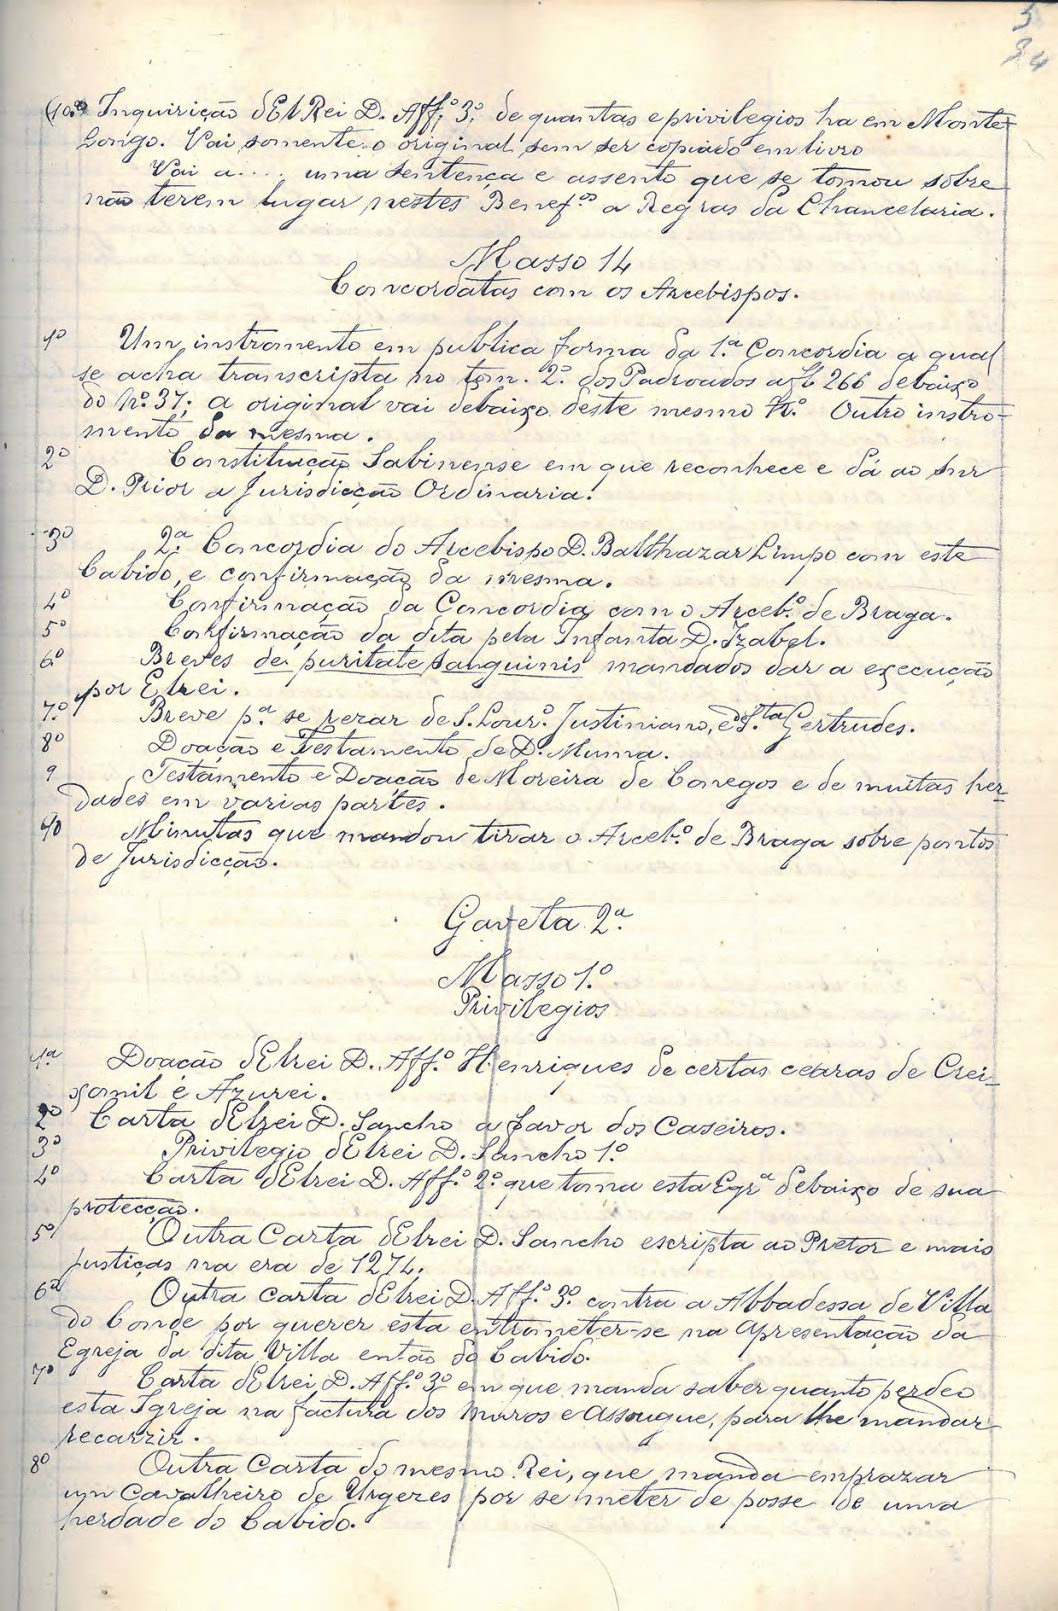 5
34
10º Inquirição d'El Rei D. Aff.º 3.º de quantas e privilegios ha em Monte
Longo. Vai somente o original sem ser copiado em livro
Vai a.... uma sentença e assento que se tomou sobre
não terem lugar nestes Benef.os a Regras da Chancelaria.
Masso 14
Concordatas com os Arcebispos.
1º Um instromento em publica forma da 1.ª Concordia a qual
se acha transcripta no tom. 2.º dos Padroados a fl 266 debaixo
do Nº. 37; a original vai debaixo deste mesmo N.º Outro instro-
mento da mesma.
2º Constituição Sabinense em que reconhece e dá ao Snr
D. Prior a Jurisdicção Ordinaria.
3º 2.ª Concordia do Arcebispo D. Balthazar Limpo com este
Cabido, e confirmação da mesma.
4º Confirmação da Concordia com o Arceb.º de Braga.
5º Confirmação da dita pela Infanta D. Izabel.
6º Breves de puritate sanguinis mandados dar a execução
por Elrei.
7.º Breve p.ª se rezar de S. Lour.º Justiniano, e de S.ta Gertrudes.
8º Doação e Testamento de D. Muma.
9 Testamento e Doação de Moreira de Conegos e de muitas her-
dades em varias partes.
10 Minutas que mandou tirar o Arceb.º de Braga sobre pontos
de Jurisdicção.
Gaveta 2.ª
Masso 1.º
Privilegios
1ª Doação d'Elrei D. Aff.º Henriques de certas cearas de Crei-
xomil e Azurei.
2º Carta d'Elrei D. Sancho a favor dos Caseiros.
3º Privilegio d'Elrei D. Sancho 1.º
4º Carta d'Elrei D. Aff.º 2.º que toma esta Egrª debaixo de sua
protecção.
5º Outra Carta d'Elrei D. Sancho escripta ao Pretor e mais
justiças na era de 1274.
6ª Outra carta d'Elrei D. Aff.º 3.º contra a Abbadessa de Villa
do Conde por querer esta entrometer-se na Apresentação da
Egreja da dita Villa então do Cabido.
7º Carta d'Elrei D. Aff.º 3º em que manda saber quanto perdeo
esta Igreja na factura dos Muros e Assougue, para lhe mandar
recarzir.
8º Outra Carta do mesmo Rei, que manda emprazar
um Cavalheiro de Urgezes por se meter de posse de uma
herdade do Cabido.